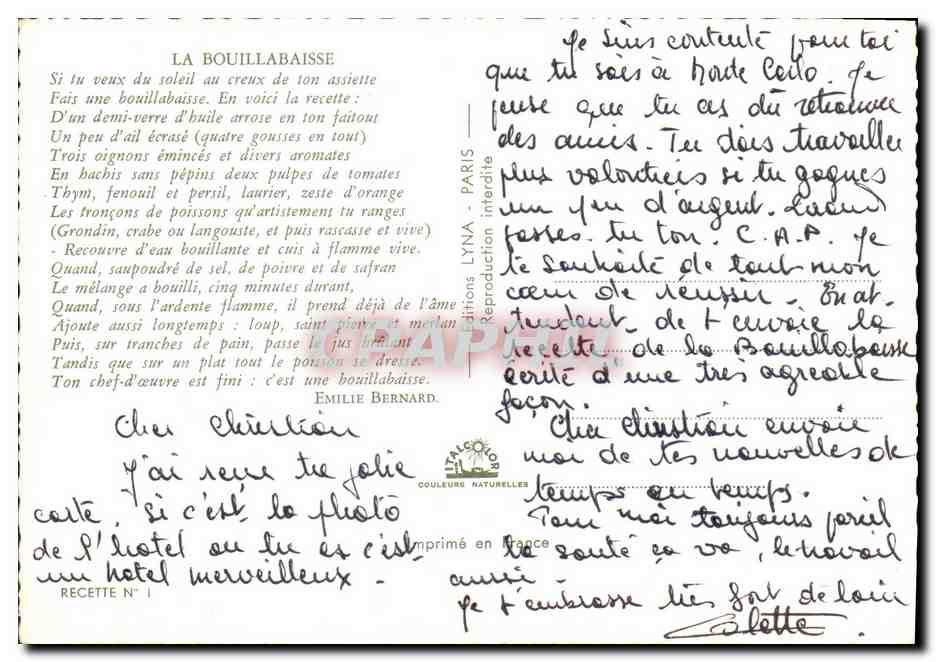 LA BOUILLABAISSE
Si tu veux du soleil au creux de ton assiette
Fais une bouillabaisse. En voici la recette :
D'un demi-verre d'huile arrose en ton faitout
Un peu d'ail écrasé (quatre gousses en tout)
Trois oignons émincés et divers aromates
En hachis sans pépins deux pulpes de tomates
Thym, fenouil et persil, laurier, zeste d'orange
Les tronçons de poissons qu'artistement tu ranges
(Grondin, crabe ou langouste, et puis rascasse et vive)
- Recouvre d'eau bouillante et cuis à flamme vive.
Quand, saupoudré de sel, de poivre et de safran
Le mélange a bouilli, cinq minutes durant,
Quand, sous l'ardente flamme, il prend déjà de l'âme
Ajoute aussi longtemps : loup, saint pierre et merlan
Puis, sur tranches de pain, passe le jus brûlant
Tandis que sur un plat tout le poisson se dresse.
Ton chef-d'œuvre est fini : c'est une bouillabaisse.
EMILIE BERNARD.
Cher Christian
J'ai reçu ta jolie
carte, si c'est la photo
de l'hotel ou tu es c'est
un hotel merveilleux -
RECETTE N° 1
Editions LYNA - PARIS
Reproduction interdite
ITALCOLOR
COULEURS NATURELLES
Imprimé en France
Je suis contente pour toi
que tu sois à Monte Carlo. Je
pense que tu as dû retrouver
des amis. Tu dois travailler
plus volontiers si tu gagnes
un peu d'argent. Quand
passes-tu ton. C.A.P. Je
te souhaite de tout mon
cœur de réussir. En at-
tendant. Je t'envoie la
recette de la Bouillabaisse
écrite d'une très agréable
façon.
Cher Christian envoie
moi de tes nouvelles de
temps en temps.
Pour moi toujours pareil
la santé ça va, le travail
aussi.
Je t'embrasse très fort de loin
Colette.